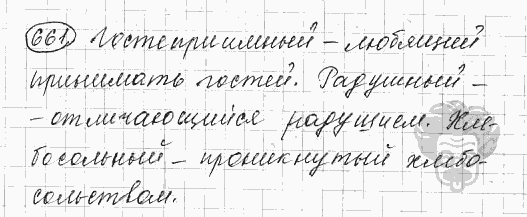 661. Гостеприимный – любящий
принимать гостей. Радушный –
- отличающийся радушием. Хле-
босольный – проникнутый хлебо-
сольством.